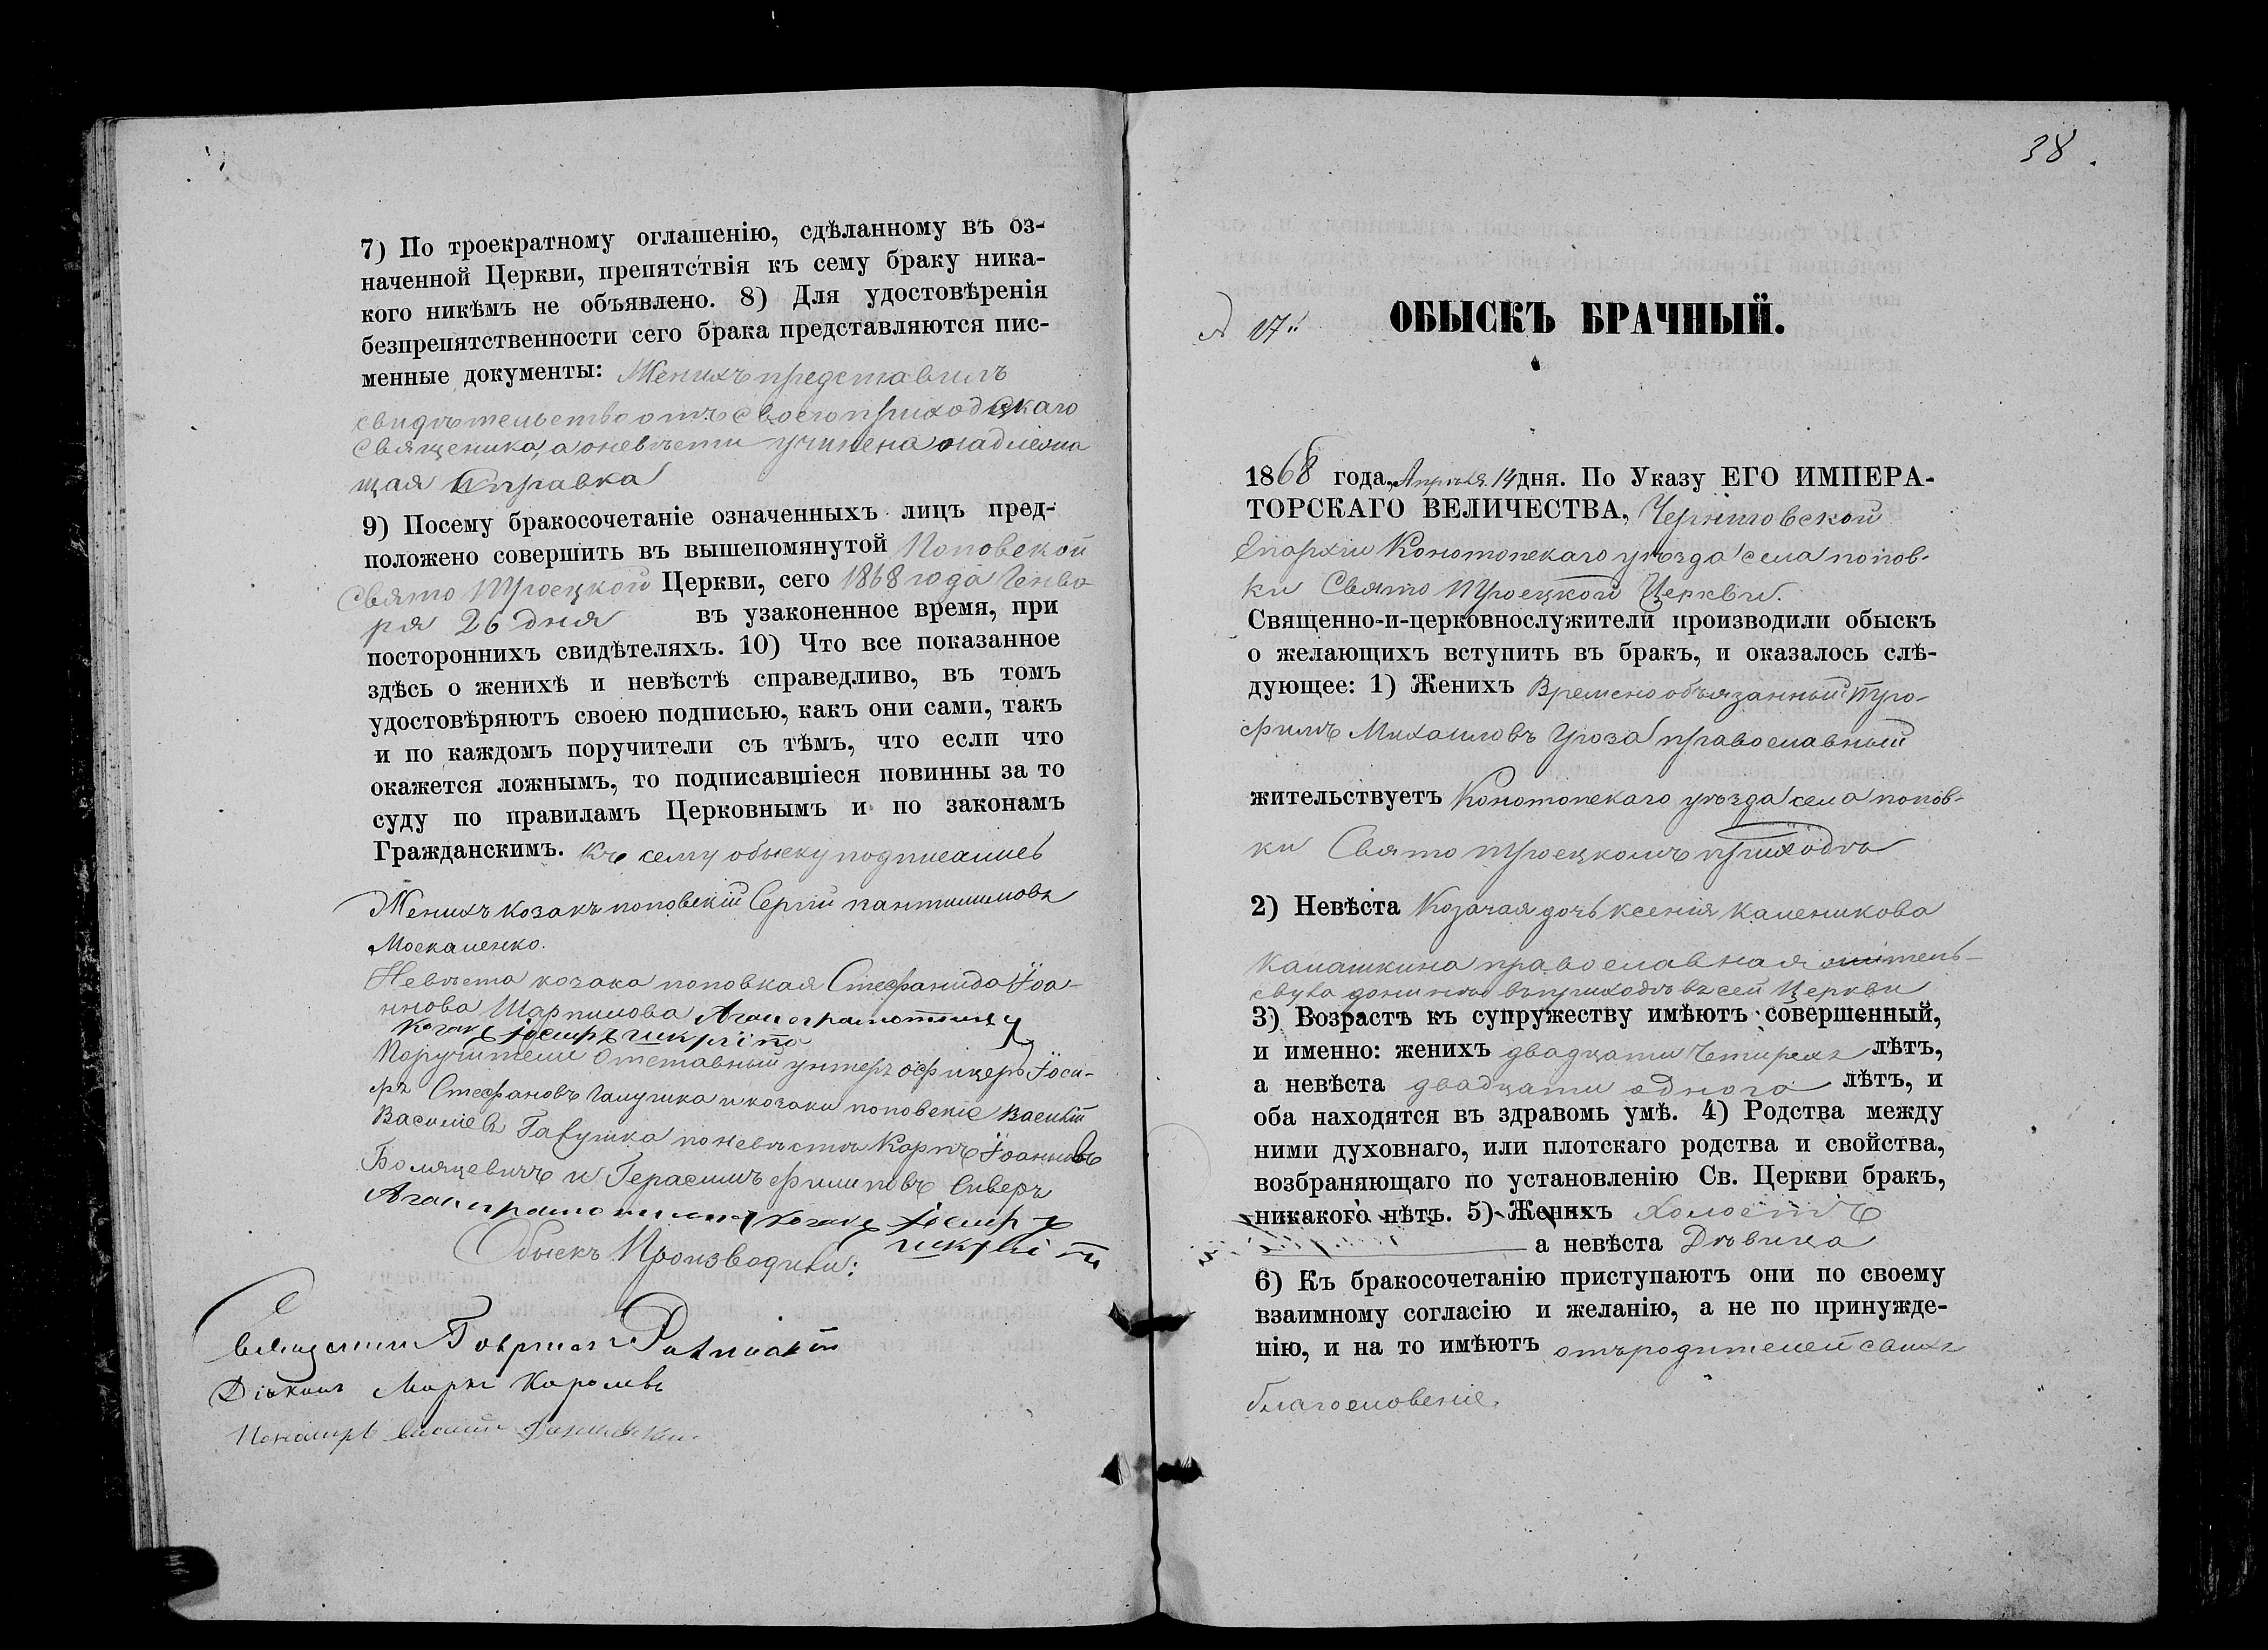 7) По троекратному оглашенію, сдѣланному въ оз-
наченной Церкви, препятствія къ сему браку ника-
кого никѣмъ не объявлено. 8) Для удостовѣренія
безпрепятственности сего брака представляются пис-
менные документы: Женихъ представилъ
свидѣтельство отъ своего приходскаго
священика, а оневѣсти учинена надлежа
щая справка
9) Посему бракосочетаніе означенныхъ лицъ пред-
положено совершить въ вышепомянутой Поповской
Свято Троецкой Церкви, сего 1868 года Генва
ря 26 дня въ узаконенное время, при
постороннихъ свидѣтеляхъ. 10) Что все показанное
здѣсь о женихѣ и невѣстѣ справедливо, въ томъ
удостовѣряютъ своею подписью, какъ они сами, такъ
и по каждомъ поручители съ тѣмъ, что если что
окажется ложнымъ, то подписавшіеся повинны за то
суду по правиламъ Церковнымъ и по законамъ
Гражданскимъ. Къ сему обыску подписались
Женихъ козакъ поповскій Сергій пантилимовъ
Москаленко.
Невѣста козачка поповкая Стефанида Іоа-
ннова Шарпилова
козакъ Іосиръ
Поручители Отставный унтеръ офицеръ Іоси-
ръ Стефановъ Галушка и козаки поповскіе Василій
Василіевъ Гавушка по невѣстѣ Карпъ Іоанновъ
и Герасимъ филиповъ Сиверъ
козакъ Іосиръ
Обыскъ Производили:
Священникъ Гавріилъ
Діаконъ Марко Королевъ
Пономарь Василій
38.
№ 17й
ОБЫСКЪ БРАЧНЫЙ.
1868 года, Апрѣля 14 дня. По Указу ЕГО ИМПЕРА-
ТОРСКАГО ВЕЛИЧЕСТВА, Черниговской
Епархіи Конотопскаго уѣзда села попов-
ки Свято Троецкой Церкви.
Священно-и-церковнослужители производили обыскъ
о желающихъ вступить въ бракъ, и оказалось слѣ-
дующее: 1) Женихъ Временообъязанный Тро-
фимъ Михаиловъ Гроза православный
жительствуетъ Конотопскаго уѣзда села попов-
ки Свято троецкомъ приходѣ
2) Невѣста Козачая дочь ксенія Каленикова
Калашкина православная житель-
донинѣ въ приходѣ въ сей Церкви
3) Возрастъ къ супружеству имѣютъ совершенный,
и именно: женихъ двадцати Четирехъ лѣтъ,
а невѣста двадцати одного лѣтъ, и
оба находятся въ здравомь умѣ. 4) Родства между
ними духовнаго, или плотскаго родства и свойства,
возбраняющаго по установленію Св. Церкви бракъ,
никакого нѣтъ. 5) Женихъ Холостъ
а невѣста Дѣвица
6) Къ бракосочетанію приступаютъ они по своему
взаимному согласію и желанію, а не по принужде-
нію, и на то имѣютъ отъ родителей своихъ
благословеніе.